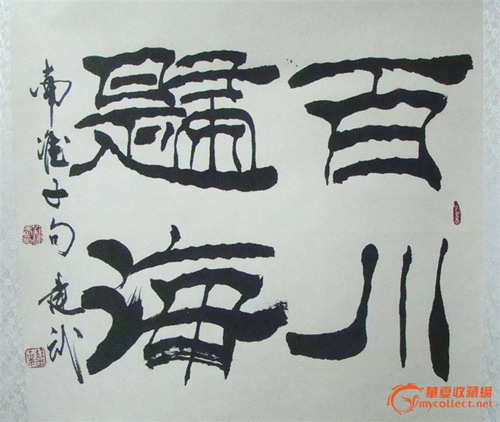 百川
歸海
南淮子句
華夏收藏網
mycollect.net